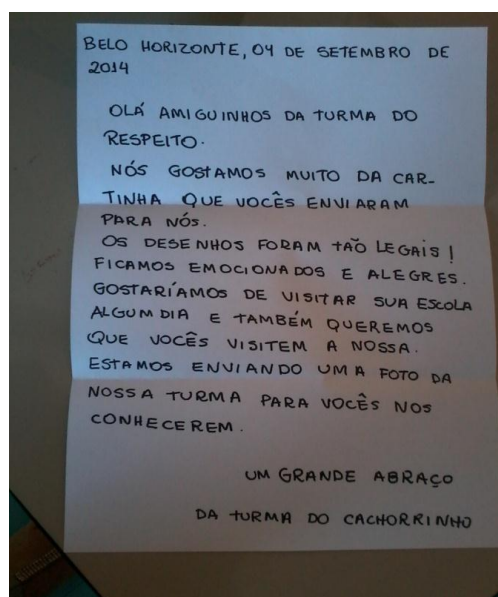 BELO HORIZONTE, 04 DE SETEMBRO DE
2014
OLÁ AMIGUINHOS DA TURMA DO
RESPEITO.
NÓS GOSTAMOS MUITO DA CAR-
TINHA QUE VOCÊS ENVIARAM
PARA NÓS.
OS DESENHOS FORAM TÃO LEGAIS!
FICAMOS EMOCIONADOS E ALEGRES.
GOSTARÍAMOS DE VISITAR SUA ESCOLA
ALGUM DIA E TAMBÉM QUEREMOS
QUE VOCÊS VISITEM A NOSSA.
ESTAMOS ENVIANDO UMA FOTO DA
NOSSA TURMA PARA VOCÊS NOS
CONHECEREM.
UM GRANDE ABRAÇO
DA TURMA DO CACHORRINHO